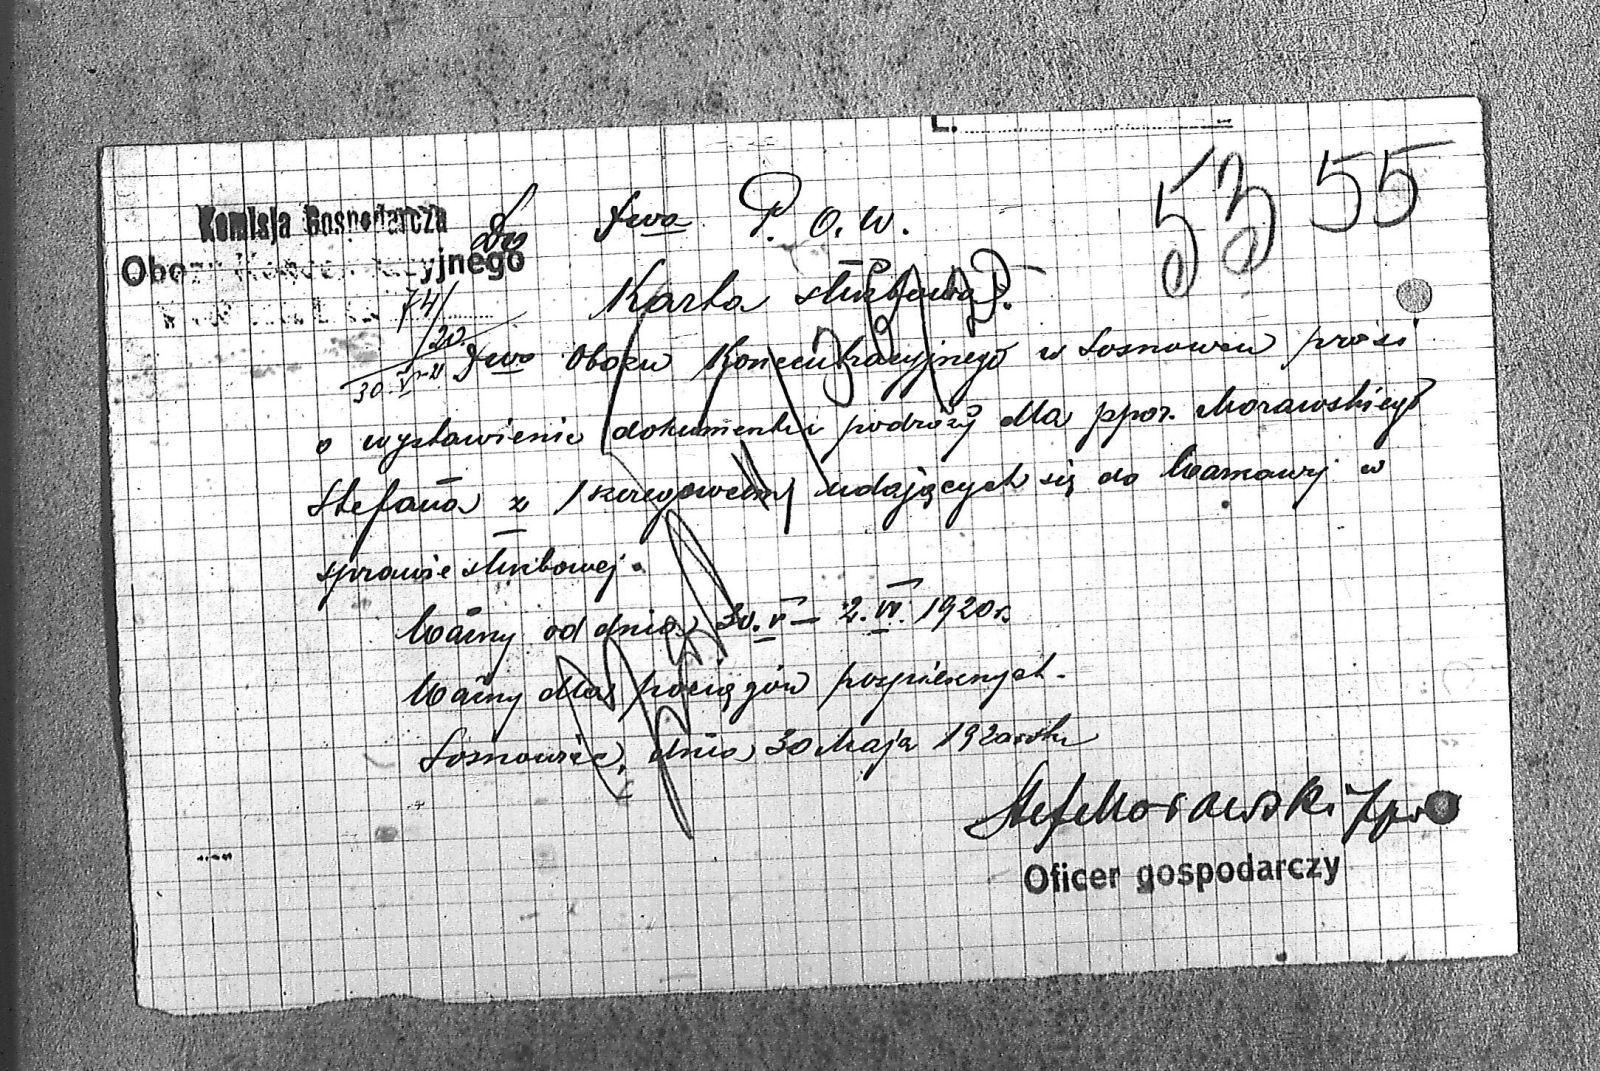 L.
53 55
Komisja Gospodarcza
Obozu Koncentracyjnego
74/20
30.V
Do Dwa P.O.W.
Karta służbowa.
Dwo Obozu Koncentracyjnego w Sosnowcu prosi
o wystawienie dokumentu podróży dla ppor. Morawskiego
Stefana z 1 szeregowcem udających się do Warszawy w
sprawie służbowej.
Ważny od dnia 30.V – 2.VI. 1920 r.
Ważny dla pociągów pośpiesznych.
Sosnowiec, dnia 30 Maja 1920 roku
Stef Morawski ppor
Oficer gospodarczy